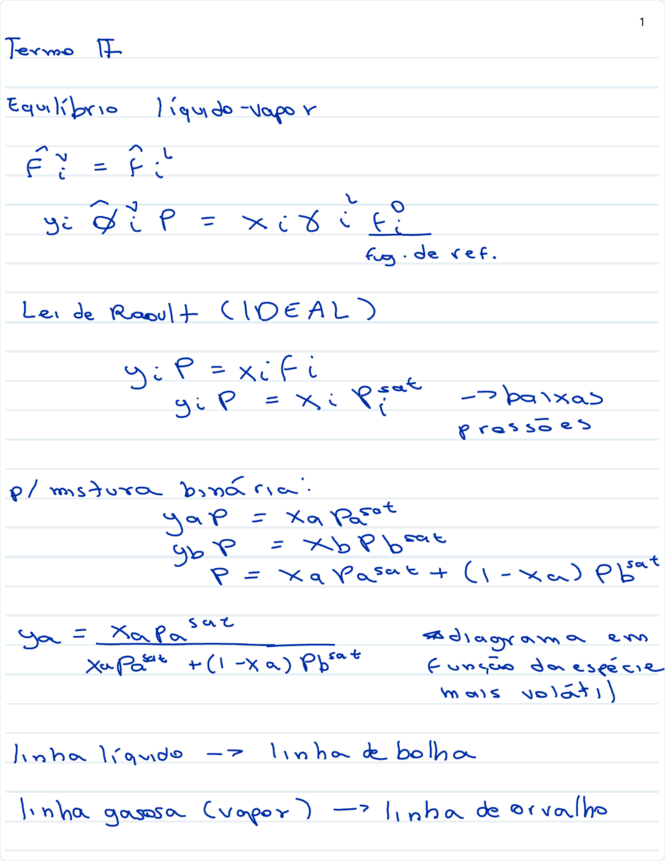 1
Termo II
Equilíbrio líquido-vapor
f̂ᵢᵛ = f̂ᵢᴸ
yi φ̂ᵢᵛ P = xi γᵢᴸ fᵢ⁰
fug. de ref.
Lei de Raoult (IDEAL)
yi P = xi fi
yi P = xi Pᵢˢᵃᵗ → baixas
pressões
p/ mistura binária:
ya P = xa Paˢᵃᵗ
yb P = xb Pbˢᵃᵗ
P = xa Paˢᵃᵗ + (1 - xa) Pbˢᵃᵗ
ya = xa Paˢᵃᵗ / xa Paˢᵃᵗ + (1 - xa) Pbˢᵃᵗ
*diagrama em
função da espécie
mais volátil
linha líquido -> linha de bolha
linha gasosa (vapor) -> linha de orvalho